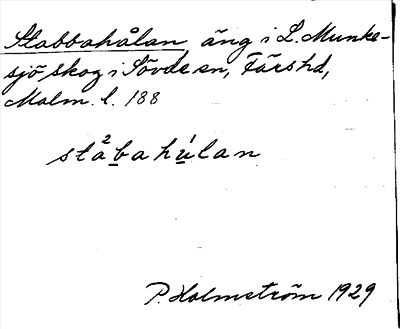 Stabbahålan, äng i L. Munke-
sjö skog i Sövde sn, Färs hd,
Malm. l. 188
stå²bahúlan
P. Holmström 1929